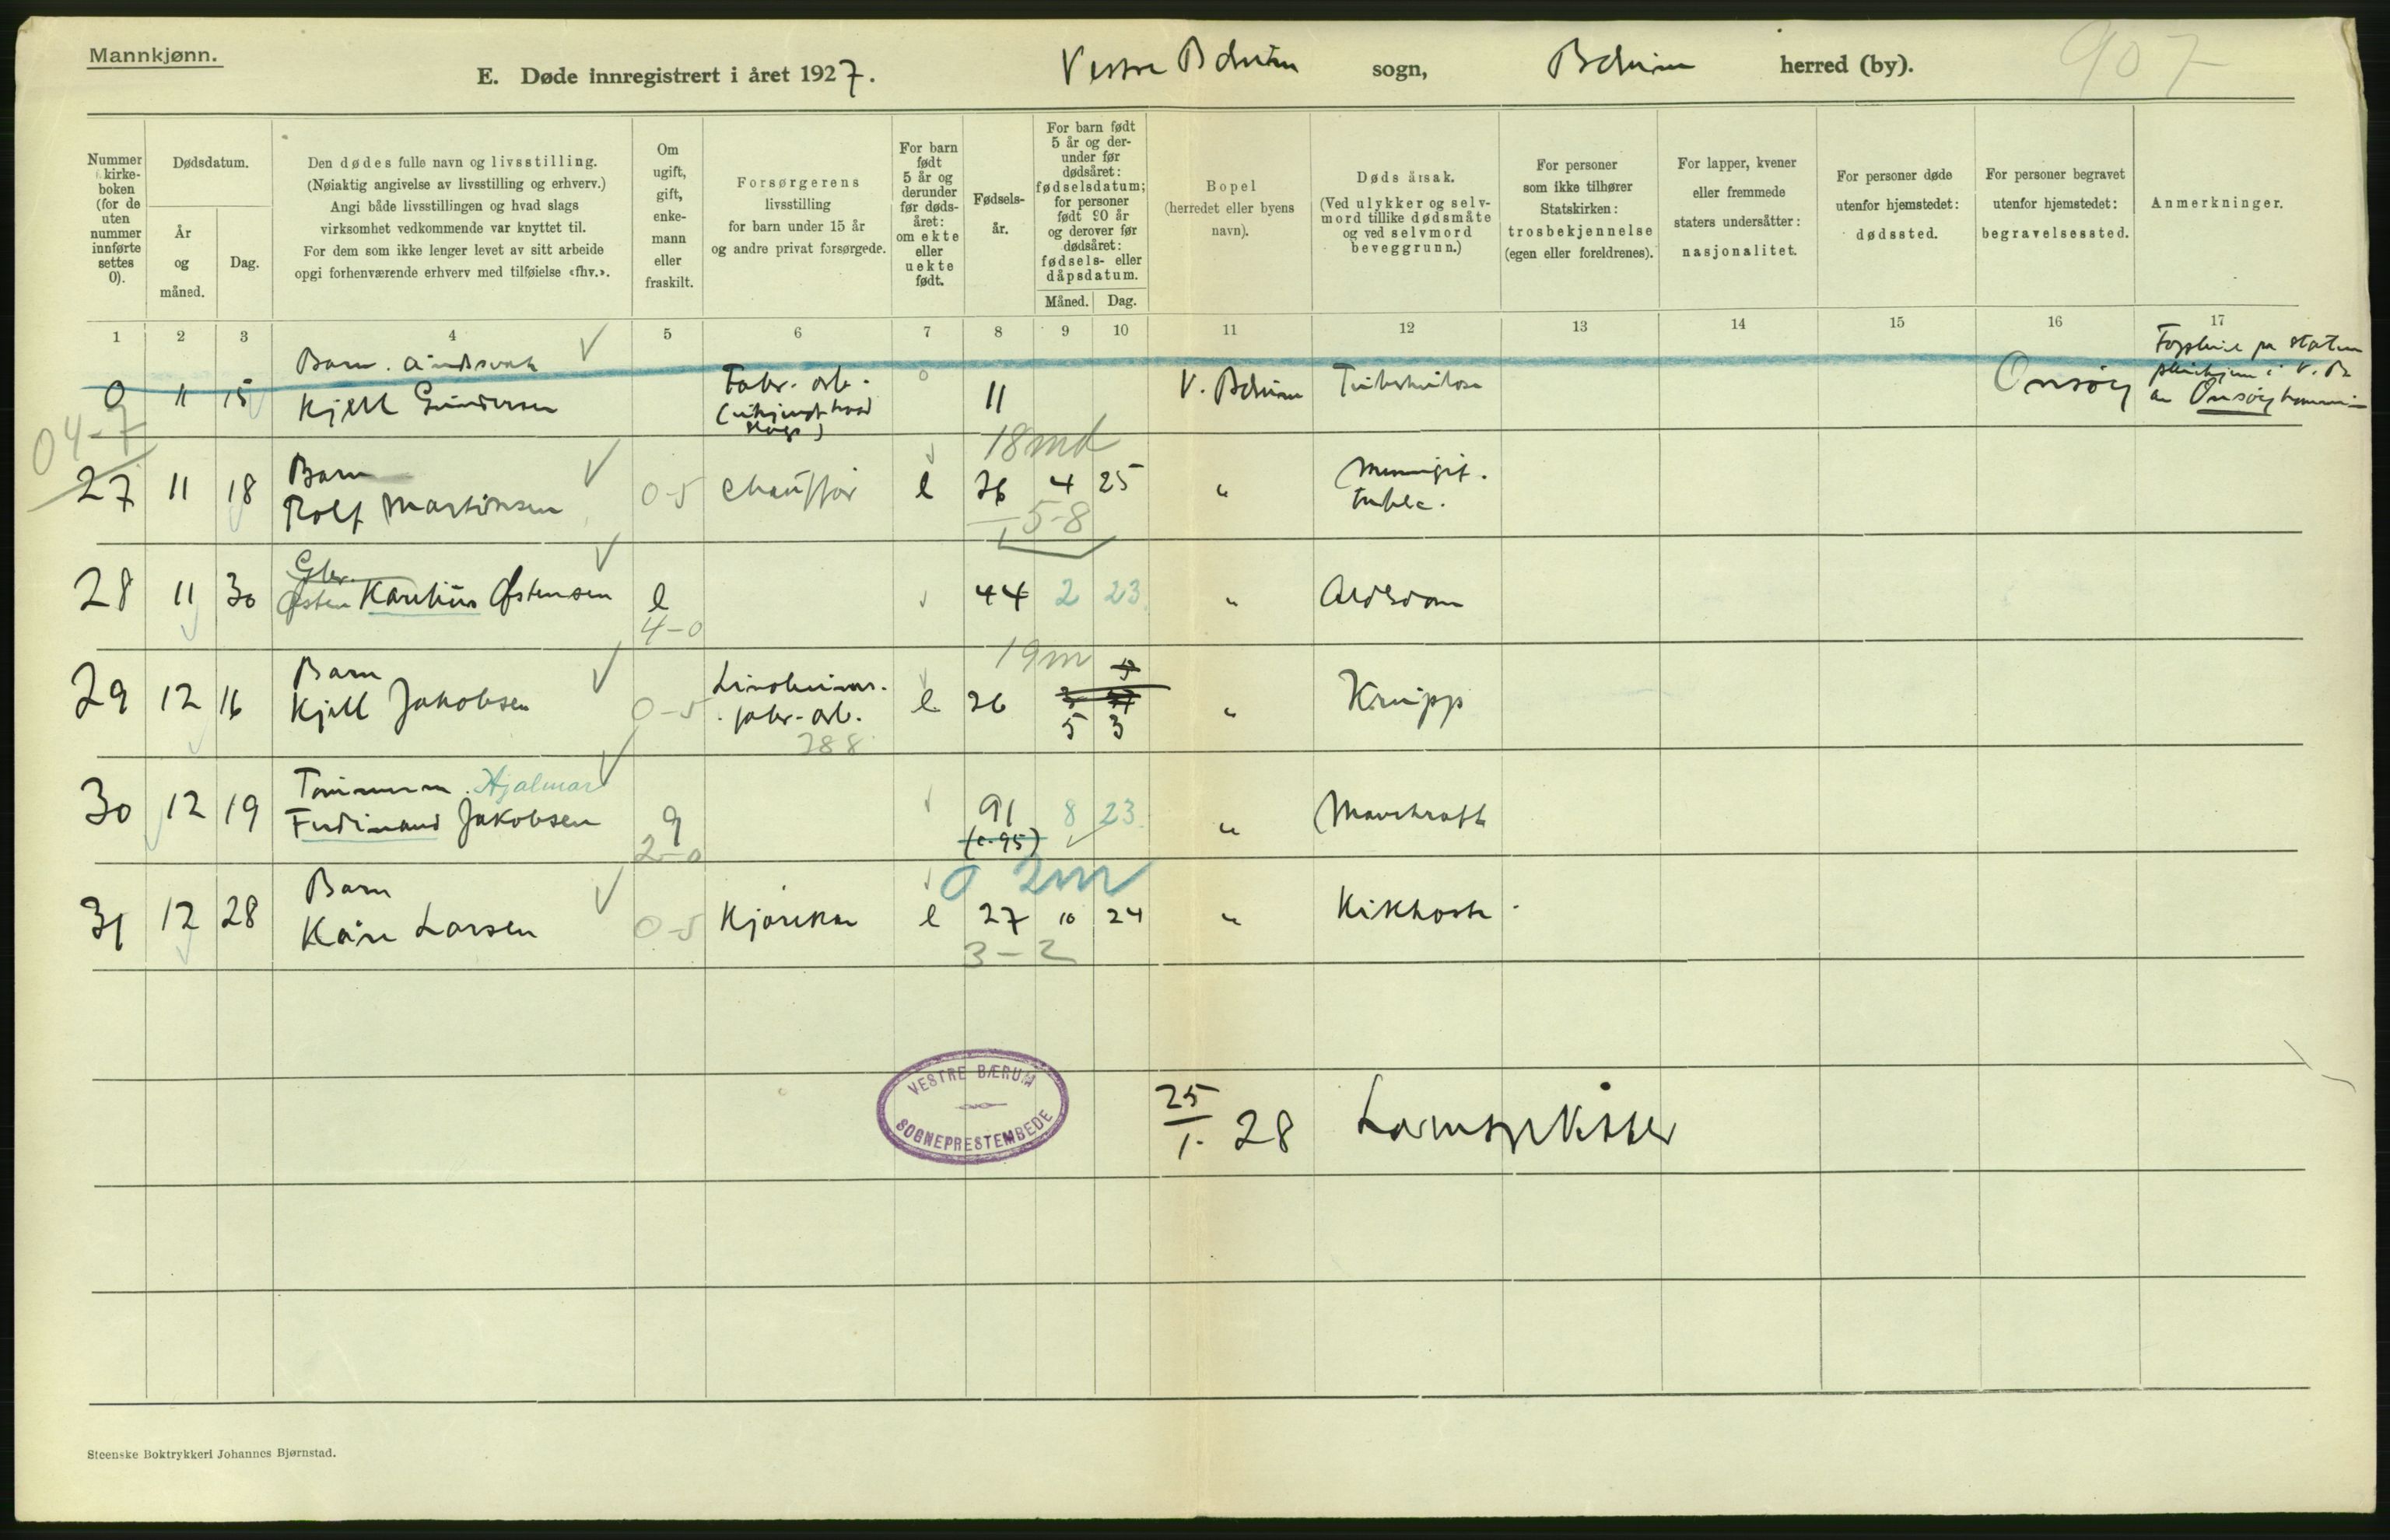 Mannkjønn.
907
E. Døde innregistrert i året 1927. Vestre Bærum sogn, Bærum herred (by).
Nummer i kirke-
boken
(for de
uten
nummer
innførte
settes
0).
Dødsdatum.
År
og
måned.
Dag.
Den dødes fulle navn og livsstilling.
(Nøiaktig angivelse av livsstilling og erhverv.)
Angi både livsstillingen og hvad slags
virksomhet vedkommende var knyttet til.
For dem som ikke lenger levet av sitt arbeide
opgi forhenværende erhverv med tilføielse «fhv.».
Om
ugift,
gift,
enke-
mann
eller
fraskilt.
Forsørgerens
livsstilling
for barn under 15 år
og andre privat forsørgede.
For barn
født
5 år og
derunder
før døds-
året:
om ekte
eller
uekte
født.
Fødsels-
år.
For barn født
5 år og der-
under før
dødsåret:
fødselsdatum;
for personer
født 90 år
og derover før
dødsåret:
fødsels- eller
dåpsdatum.
Måned. Dag.
Bopel
(herredet eller byens
navn).
Døds årsak.
(Ved ulykker og selv-
mord tillike dødsmåte
og ved selvmord
beveggrunn.)
For personer
som ikke tilhører
Statskirken:
trosbekjennelse
(egen eller foreldrenes).
For lapper, kvener
eller fremmede
staters undersåtter:
nasjonalitet.
For personer døde
utenfor hjemstedet:
dødssted.
For personer begravet
utenfor hjemstedet:
begravelsessted.
Anmerkninger.
1 2 3 4 5 6 7 8 9 10 11 12 13 14 15 16 17
Barn. åndssvak
0 11 15 Kjell Gundersen Fabr. arb. 0 11 V. Bærum Tuberkulose Onsøy
(ukjendt hvad
slags)
av Onsøy
04-7
18 md
Barn
27 11 18 Rolf Martinsen 0-5 Chauffør e 26 4 25 " Meningit.
tuberc.
5-8
Gbr.
28 11 30 Østen Karelius Østensen e 44 2 23 " Alderdom
4-0
19 m
Barn
29 12 16 Kjell Jakobsen 0-5 Linoleums- e 26 5 3 " Krupp
fabr.-arb.
288
Tømmerm. Hjalmar
30 12 19 Ferdinand Jakobsen g 91 8 23 " Mavekræft
2-0
(c. 95)
0 2m
Barn
31 12 28 Kåre Larsen 0-5 Kjørekar e 27 10 24 " Kikhoste.
3-2
VESTRE BÆRUM
SOGNEPRESTEMBEDE
25/1. 28
Steenske Boktrykkeri Johannes Bjørnstad.